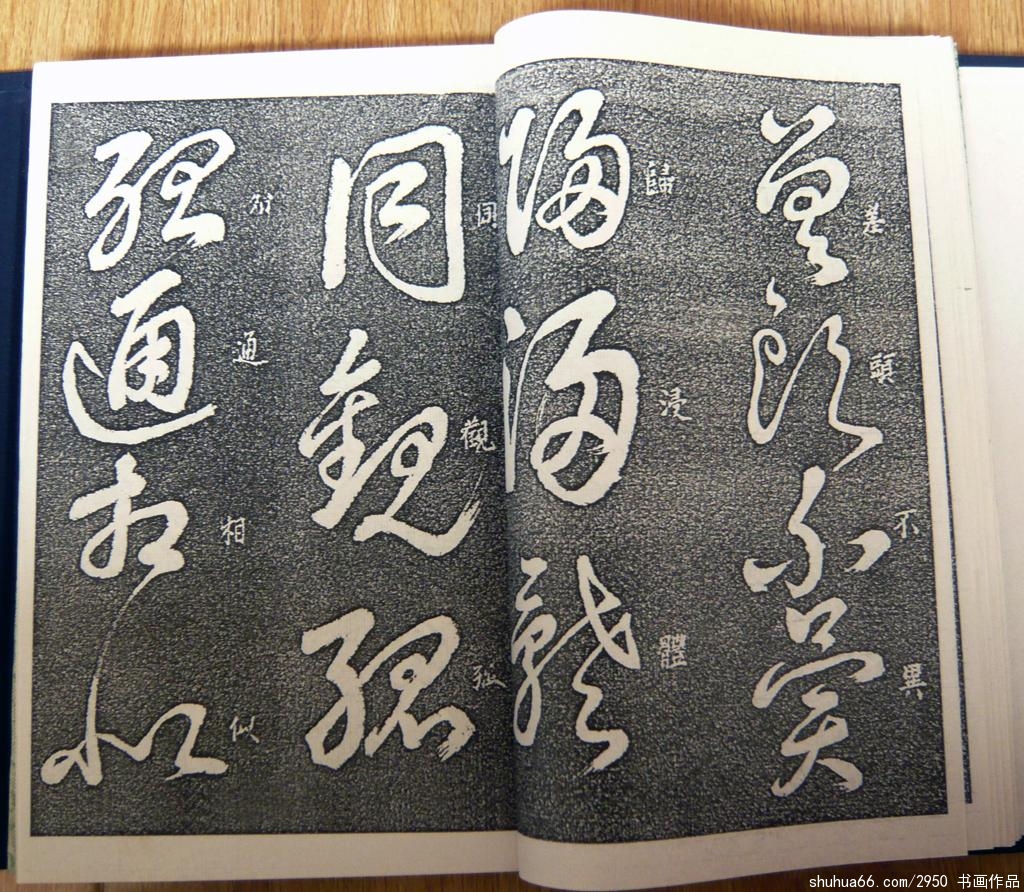 差頭不異
歸浸體
同觀
通相似
shuhua66.com/2950 书画作品